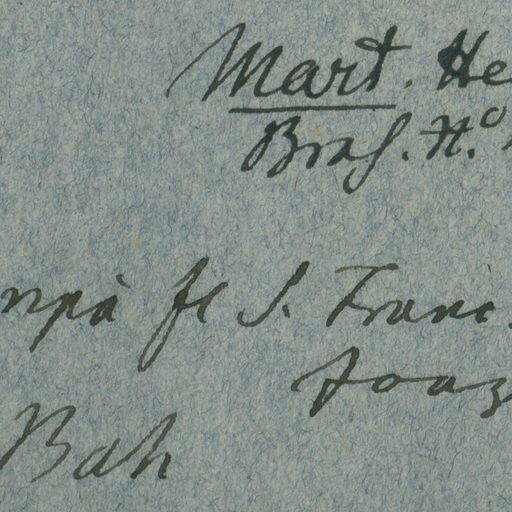 Mart. He
Bras. N.º
npà fl S. Franc.
Joaz
Bah